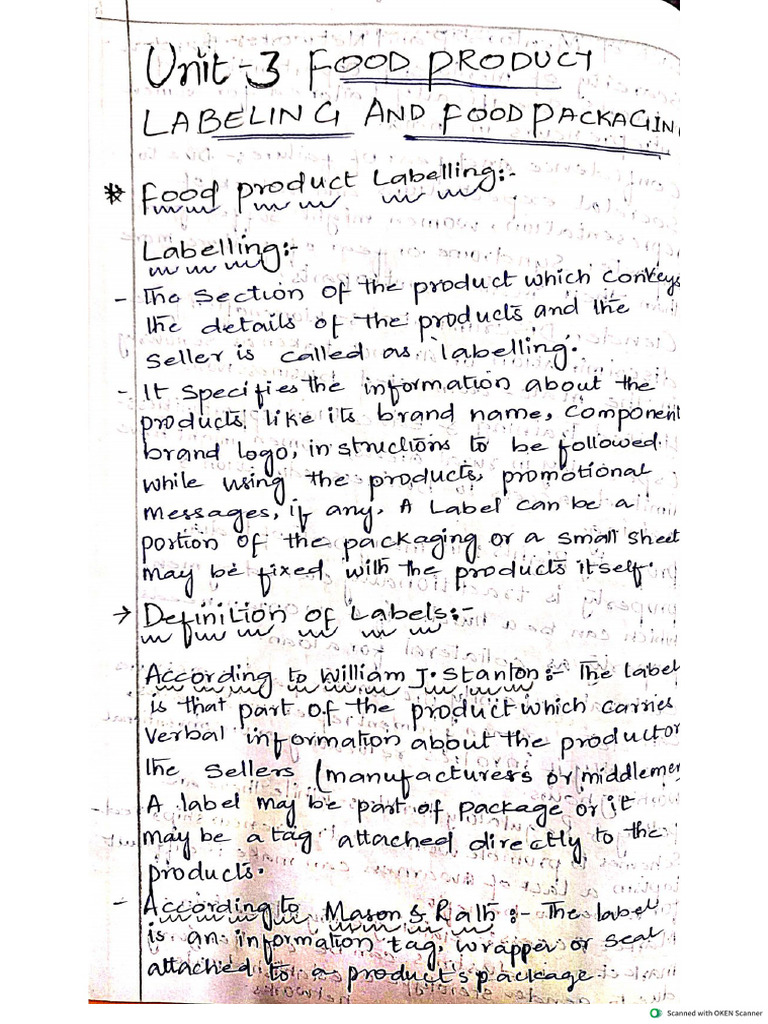 Unit-3 FOOD PRODUCT
LABELING AND FOOD PACKAGIN
* Food product Labelling:-
Labelling:-
- The section of the product which conveys
the details of the products and the
seller is called as labelling.
- It specifies the information about the
products like its brand name, component
brand logo, instructions to be followed
while using the products, promotional
messages, if any. A Label can be a
portion of the packaging or a small sheet
may be fixed with the products itself.
→ Definition of Labels:-
According to William J. Stanton:- The label
is that part of the product which carries
verbal information about the product or
the sellers (manufacturers or middlemen
A label may be part of package or it
may be a tag attached directly to the
products.
- According to Mason & Rath :- The label
is an information tag, wrapper or seal
attached to a product's package.
Scanned with OKEN Scanner